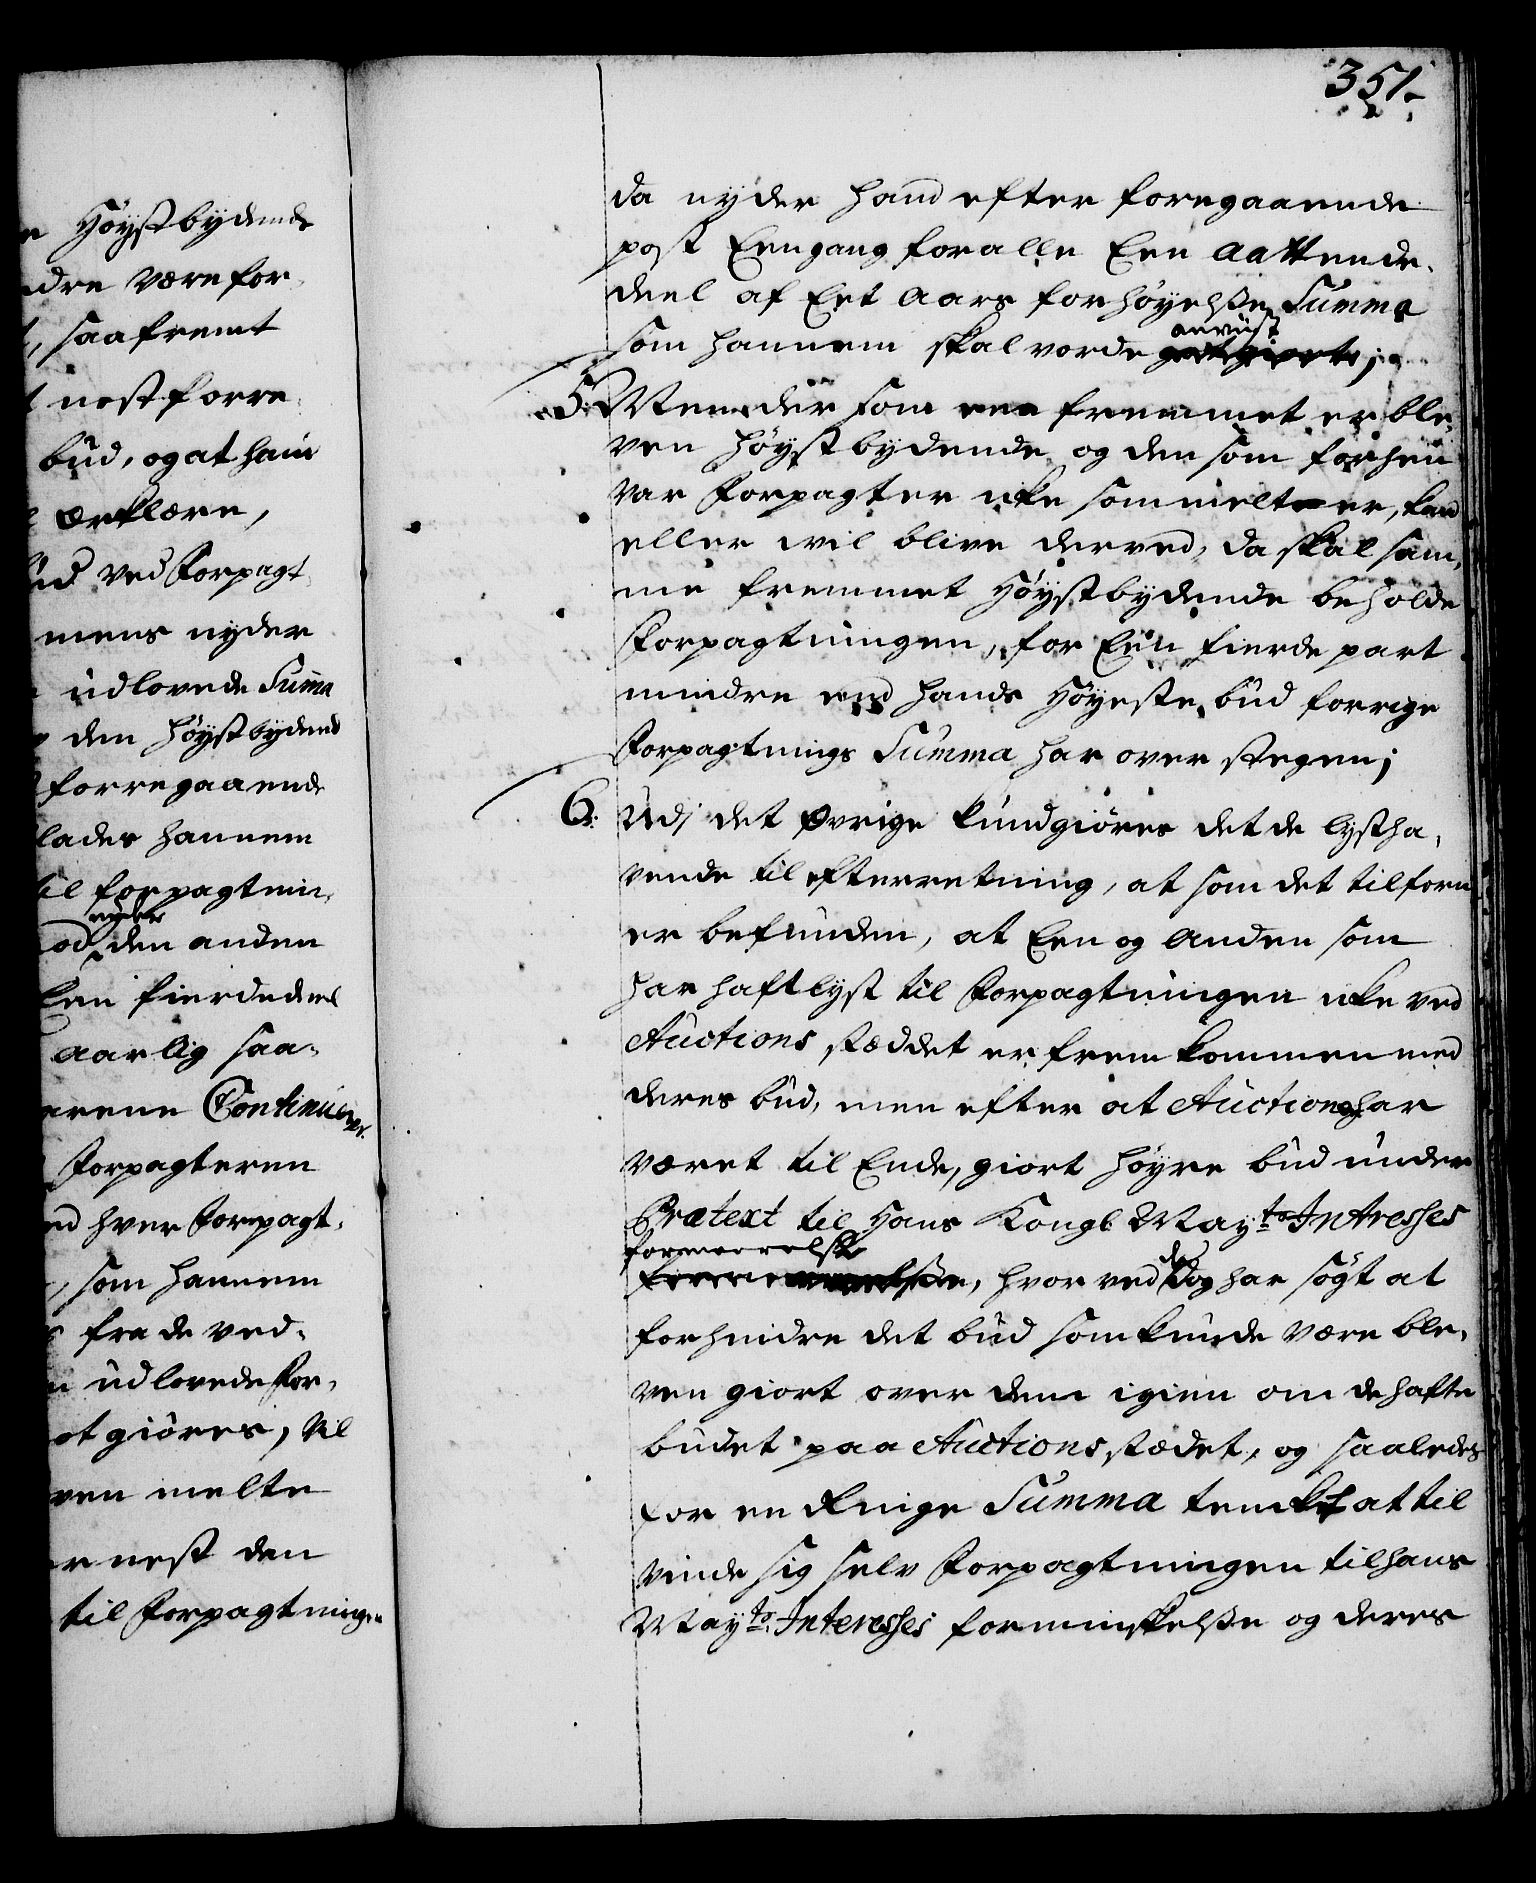 e Høystbydende
dre være for-
t, saafremt
t nest forre-
bud, og at hans
l Ærklære,
ud ved Forpagt-
mens nyder
udlovede Summa
den Høystbydende
forregaaende
lades hannem
til forpagtnin-
nyder
od den anden
Een fierdedeel
aarlig saa-
arene Continuer.
Forpagteren
ed hver Forpagt-
, som hannem
s fra de ved-
n udlovede For-
ot giøres, til
ven melte
er nest den
til Forpagtningen
351.
da nyder hand efter foregaaende
post Eengang for alle Een aattende-
deel af Eet Aars forhøyelse Summa
anviist
som hannem skal vorde godtgiort;
5. Men der som een fremmet er ble-
ven høystbydende og den som forhen
var Forpagter icke sommelt er, kand
eller vil blive derved, da skal sam-
me fremmet Høystbydende beholde
Forpagtningen, for Een fierde part
mindre end hands Høyeste bud forrige
Forpagtnings Summa har over stegen;
6. Udj det øvrige kundgiøres det de lystha-
vende til efterretning, at som det tilforn
er befunden, at Een og Anden som
har haft lyst til Forpagtningen icke ved
Auctions stæddet er frem kommen med
deres bud, men efter at Auction har
været til Ende, giort høyre bud under
Prætext til Hans Kongl. May:ts Intresses
formeerelse
formeerelse, hvor ved de dog har søgt at
forhindre det bud som kunde være ble-
ven giort over dem igien om de hafte
budet paa Auctions stædet, og saaledes
for en Ringe Summa tenckt at til
vinde sig selv Forpagtningen til hans
May:ts Interesses forminskelse og deres